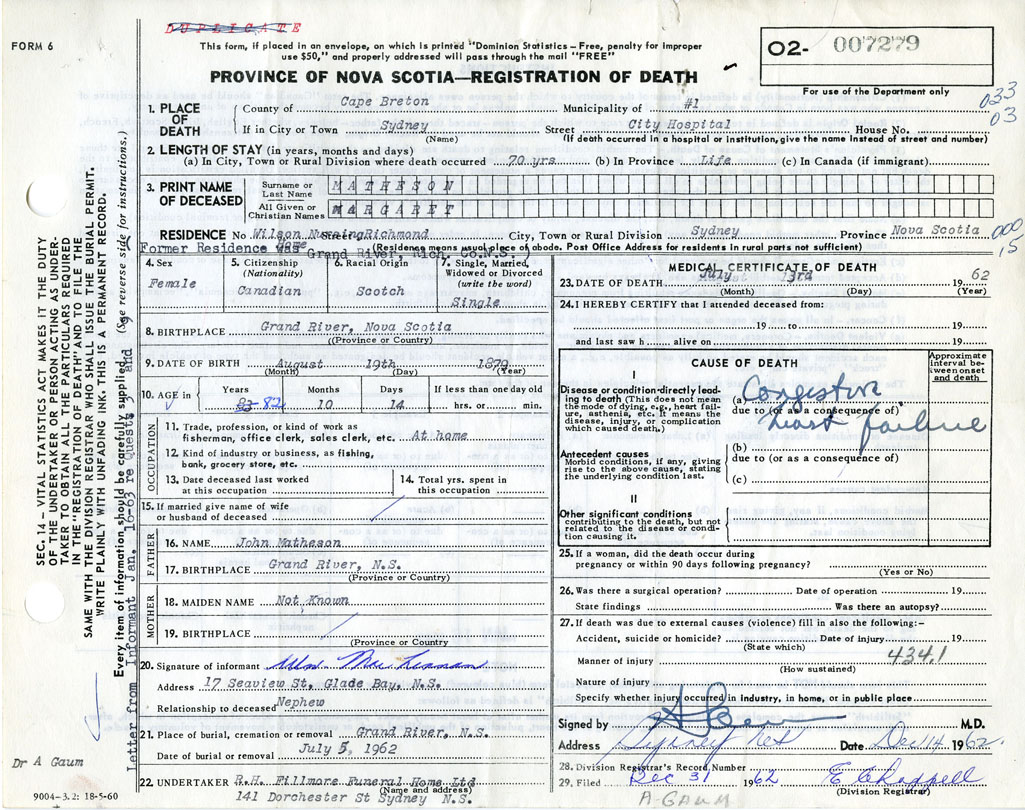 DUPLICATE
FORM 6
This form, if placed in an envelope, on which is printed "Dominion Statistics – Free, penalty for improper
use $50," and properly addressed will pass through the mail "FREE"
PROVINCE OF NOVA SCOTIA—REGISTRATION OF DEATH
O2- 007279
For use of the Department only
033
03
1. PLACE OF DEATH
County of Cape Breton Municipality of #1
If in City or Town Sydney (Name) Street City Hospital House No.
(If death occurred in a hospital or institution, give the name instead of street and number)
2. LENGTH OF STAY (in years, months and days)
(a) In City, Town or Rural Division where death occurred 70 yrs. (b) In Province Life (c) In Canada (if immigrant)
3. PRINT NAME OF DECEASED
Surname or Last Name MATHESON
All Given or Christian Names MARGARET
RESIDENCE No Wilson Nursing Home Street Richmond City, Town or Rural Division Sydney Province Nova Scotia
000
15
Former Residence was Grand River, Rich. Co. N.S. )
(Residence means usual place of abode. Post Office Address for residents in rural parts not sufficient)
4. Sex
Female
5. Citizenship
(Nationality)
Canadian
6. Racial Origin
Scotch
7. Single, Married, Widowed or Divorced
(write the word)
Single
8. BIRTHPLACE Grand River, Nova Scotia
((Province or Country)
9. DATE OF BIRTH August 19th 1879
(Month) (Day) (Year)
10. AGE in Years 83 82 Months 10 Days 14 If less than one day old hrs. or min.
OCCUPATION
11. Trade, profession, or kind of work as
fisherman, office clerk, sales clerk, etc. At home
12. Kind of industry or business, as fishing,
bank, grocery store, etc.
13. Date deceased last worked
at this occupation
14. Total yrs. spent
in this occupation
15. If married give name of wife
or husband of deceased
FATHER
16. NAME John Matheson
17. BIRTHPLACE Grand River, N.S.
(Province or Country)
MOTHER
18. MAIDEN NAME Not Known
19. BIRTHPLACE
(Province or Country)
20. Signature of informant Wm. MacLennan
Address 17 Seaview St, Glade Bay, N.S.
Relationship to deceased Nephew
21. Place of burial, cremation or removal Grand River, N.S.
Date of burial or removal July 5, 1962
22. UNDERTAKER R.H. Fillmore Funeral Home Ltd
(Name and address)
141 Dorchester St Sydney N.S.
MEDICAL CERTIFICATE OF DEATH
23. DATE OF DEATH July 3rd 1962
(Month) (Day) (Year)
24. I HEREBY CERTIFY that I attended deceased from:
19 to 19
and last saw h alive on 19
CAUSE OF DEATH
Approximate interval between onset and death
I
Disease or condition directly leading to death (This does not mean the mode of dying, e.g., heart failure, asthenia, etc. It means the disease, injury, or complication which caused death.)
(a) Congestive
due to (or as a consequence of)
heart failure
(b)
due to (or as a consequence of)
(c)
Antecedent causes
Morbid conditions, if any, giving rise to the above cause, stating the underlying condition last.
II
Other significant conditions
contributing to the death, but not related to the disease or condition causing it.
25. If a woman, did the death occur during
pregnancy or within 90 days following pregnancy?
(Yes or No)
26. Was there a surgical operation? Date of operation 19
State findings Was there an autopsy?
27. If death was due to external causes (violence) fill in also the following:–
Accident, suicide or homicide? Date of injury 19
(State which)
Manner of injury 434.1
(How sustained)
Nature of injury
Specify whether injury occurred in industry, in home, or in public place
Signed by M.D.
Address Sydney NS Date Dec 14 1962
28. Division Registrar's Record Number
29. Filed Dec 31 1962 E Chappell
(Division Registrar)
A-GAUM
SEC. 14 – VITAL STATISTICS ACT MAKES IT THE DUTY
OF THE UNDERTAKER OR PERSON ACTING AS UNDER-
TAKER TO OBTAIN ALL THE PARTICULARS REQUIRED
IN THE "REGISTRATION OF DEATH" AND TO FILE THE
SAME WITH THE DIVISION REGISTRAR WHO SHALL ISSUE THE BURIAL PERMIT.
WRITE PLAINLY WITH UNFADING INK. THIS IS A PERMANENT RECORD.
Every item of information should be carefully supplied (See reverse side for instructions.)
Letter from Informant Jan. 16-63 re Quests 3 and 9
Dr A Gaum
9004-3.2: 18-5-60